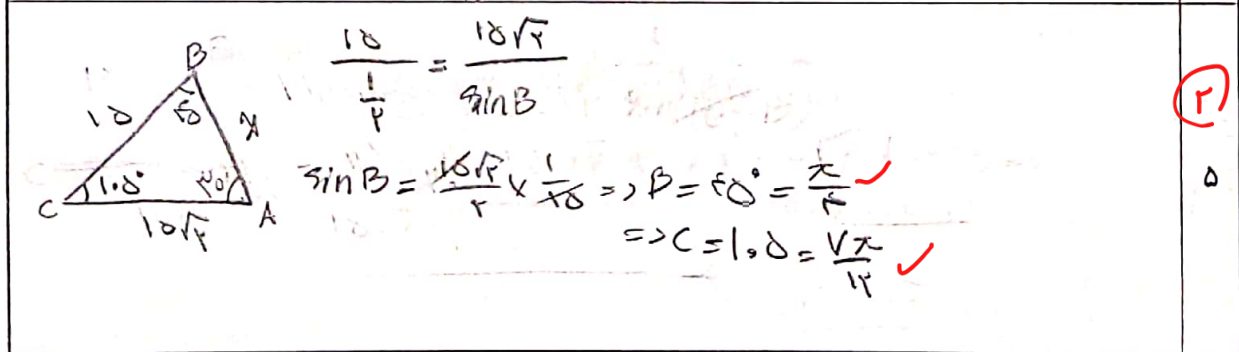 B
۱۵ ۴۵ x
C ۱۰۵° ۳۰° A
۱۵√۲
۱۵ / (۱/۲) = ۱۵√۲ / sin B
sin B = ۱۵√۲ / ۲ × ۱ / ۱۵ => B = ۴۵° = π/۴
=> C = ۱۰۵ = ۷π/۱۲
۲
۵